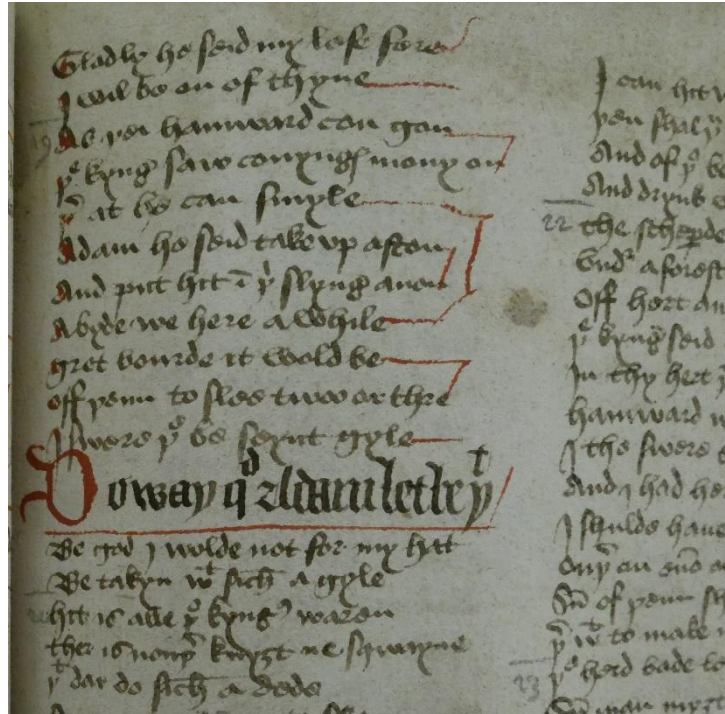 Gladly he seid my lefe fere
I wil be on of thyne
As þei hamward con gon
þe kyng saw conyngs mony on
þt at he can smyle
Adam he seid take vp a ston
And put hit ī þi slyng anon
Abyde we here a while
gret bourde it wold be
off þem to slee twoo or thre
I swere þe be seynt gyle
Do way qd Adam let be þt
Be god I wolde not for my hat
Be takyn wt sich a gyle
hit is alle þe kyng waren
ther is noþ knyȝt ne sqwayne
þt dar do sich a dede
I can hit
þen shal
And of þe
And drynk
22
the scheperde
vnd a forest
Off hert an
þe kyng seid
In thy hert
hamward
I the swere
And I had he
I shulde haue
ony on
of þem
þt wt to make
23
þe herd bade